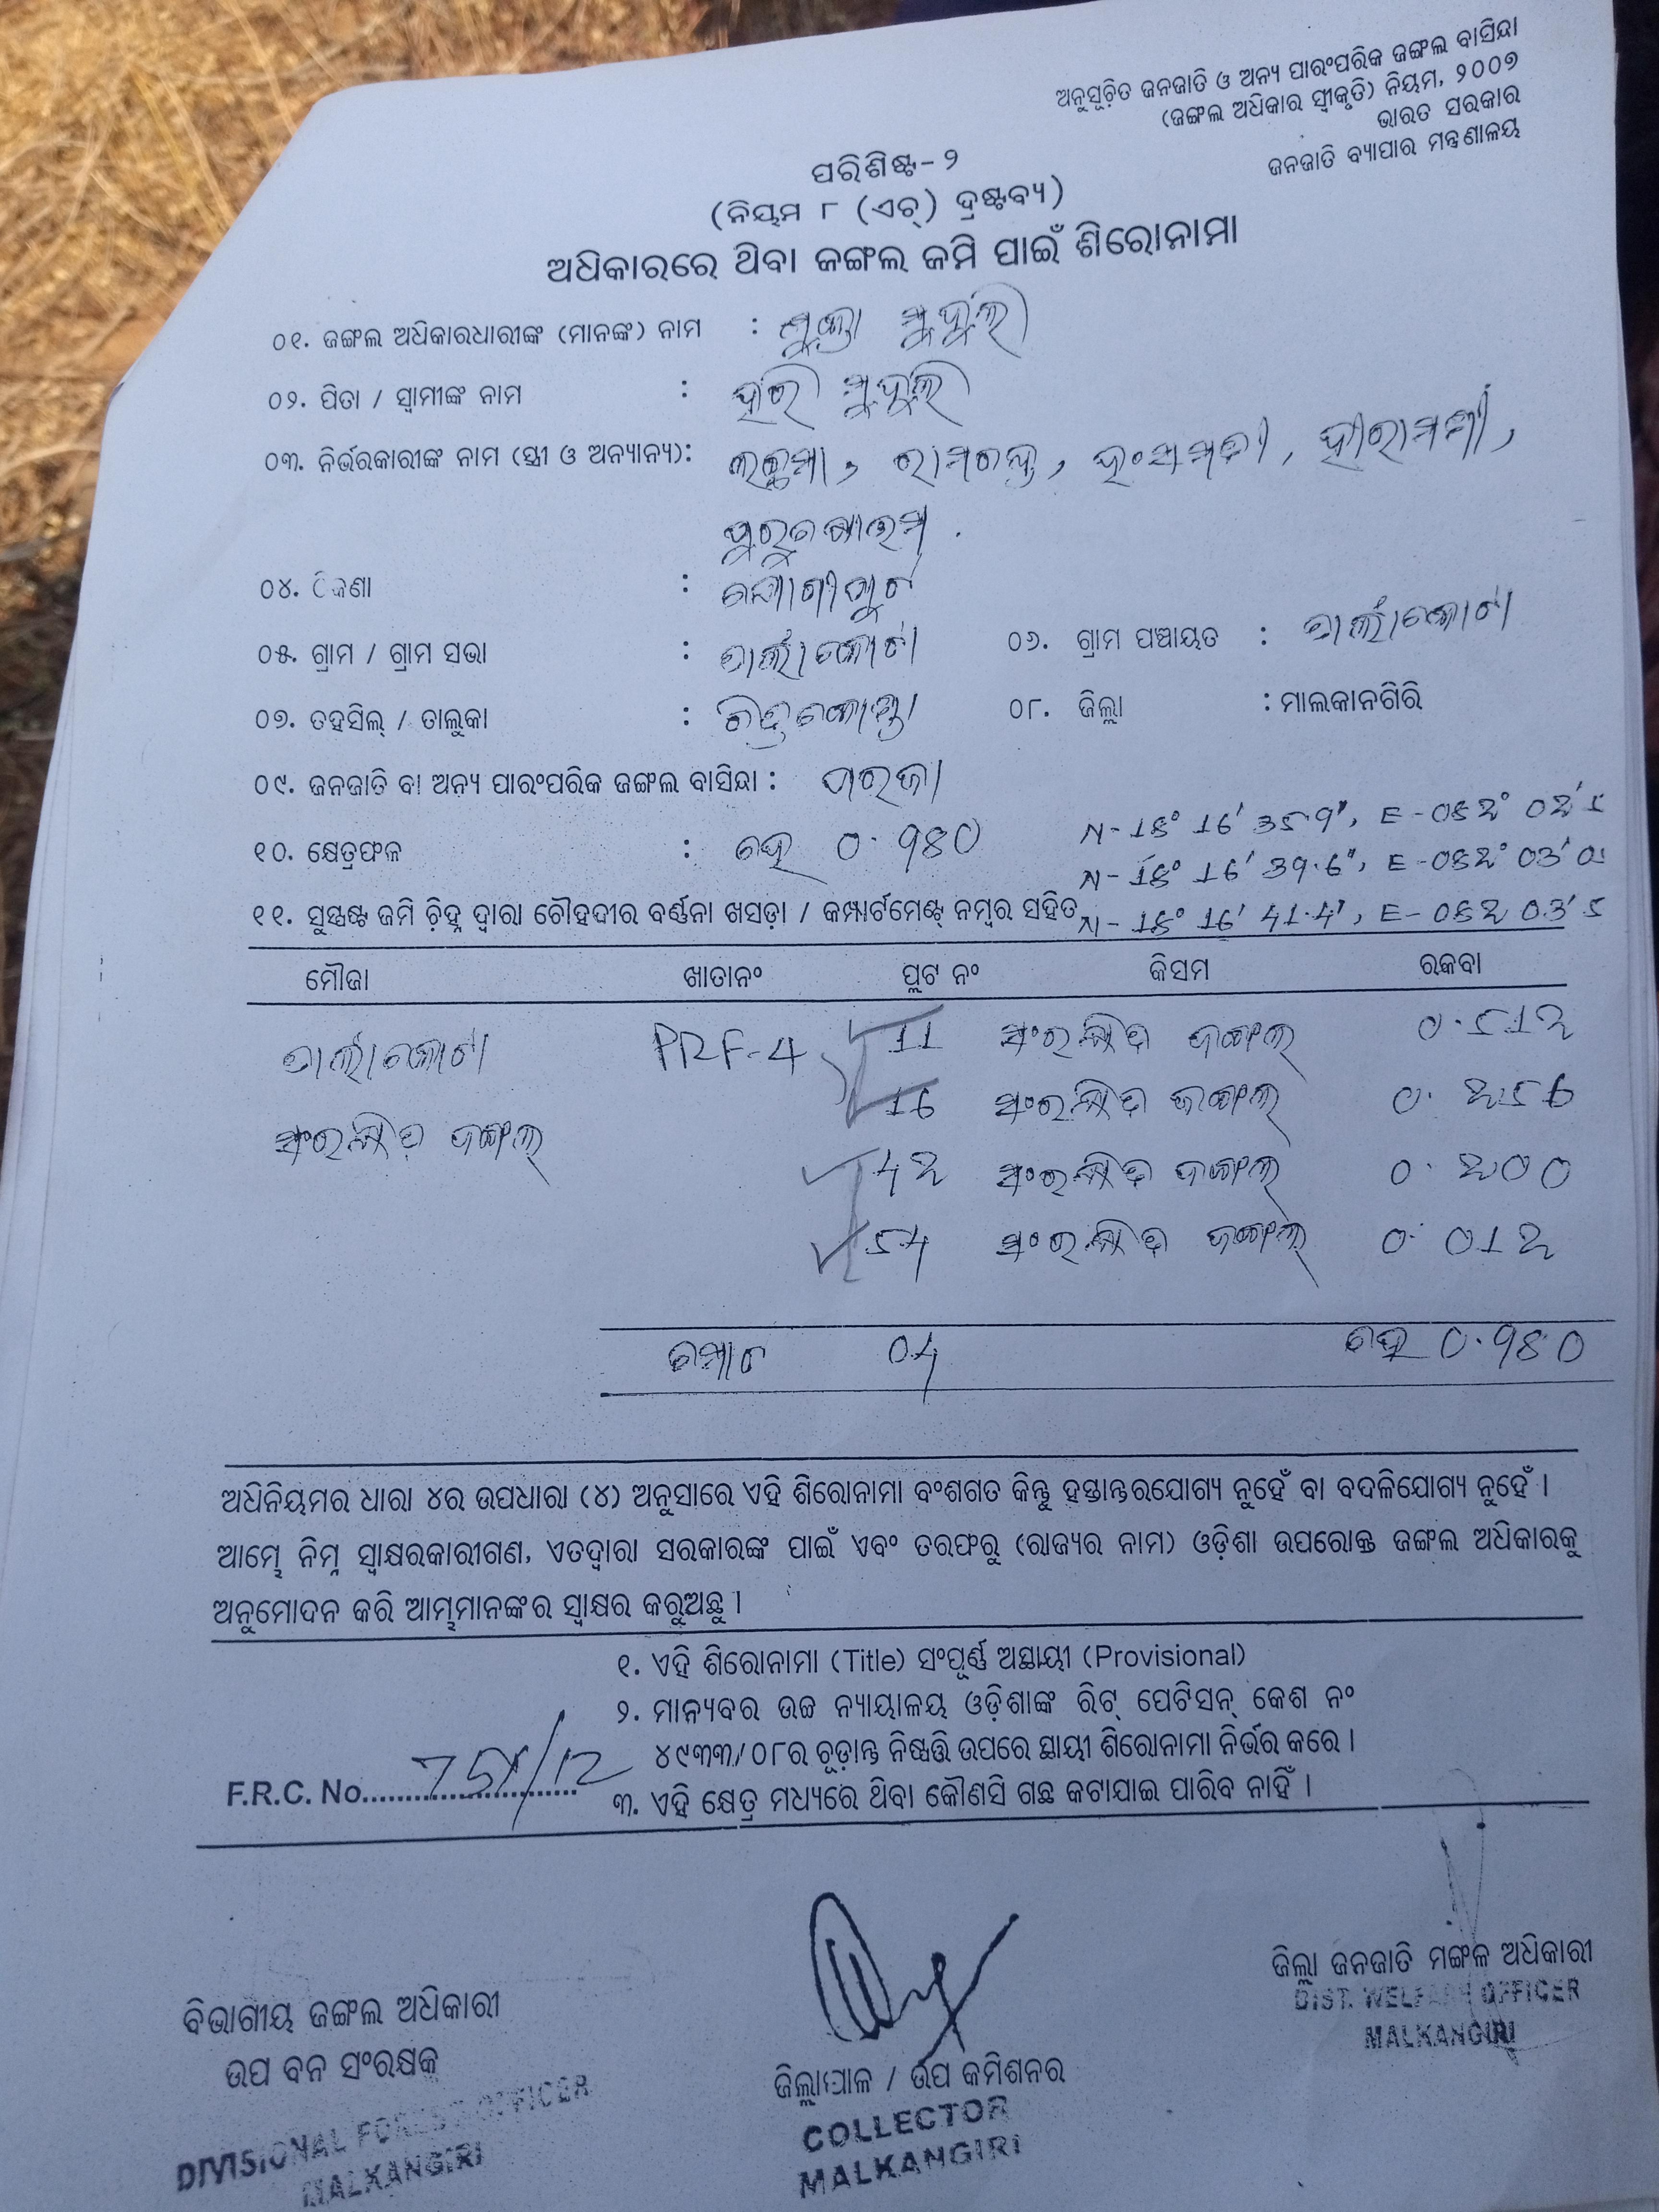 ଅନୁସୂଚିତ ଜନଜାତି ଓ ଅନ୍ୟ ପାରଂପରିକ ଜଙ୍ଗଲ ବାସିନ୍ଦା
(ଜଙ୍ଗଲ ଅଧିକାର ସ୍ୱୀକୃତି) ନିୟମ, ୨୦୦୭
ଭାରତ ସରକାର
ଜନଜାତି ବ୍ୟାପାର ମନ୍ତ୍ରଣାଳୟ
ପରିଶିଷ୍ଟ-୨
(ନିୟମ ୮ (ଏଚ୍) ଦ୍ରଷ୍ଟବ୍ୟ)
ଅଧିକାରରେ ଥିବା ଜଙ୍ଗଲ ଜମି ପାଇଁ ଶିରୋନାମା
୦୧. ଜଙ୍ଗଲ ଅଧିକାରଧାରୀଙ୍କ (ମାନଙ୍କ) ନାମ : ମୁକ୍ତା ମୁଦୁଲି
୦୨. ପିତା / ସ୍ୱାମୀଙ୍କ ନାମ : ହରି ମୁଦୁଲି
୦୩. ନିର୍ଭରକାରୀଙ୍କ ନାମ (ସ୍ତ୍ରୀ ଓ ଅନ୍ୟାନ୍ୟ): ଲଛମା, ରାମଚନ୍ଦ୍ର, ହଂସମତୀ, ହୀରାମଣୀ,
୦୪. ଠିକଣା :
୦୫. ଗ୍ରାମ / ଗ୍ରାମ ସଭା : ଟାର୍ଲାକୋଟା ୦୬. ଗ୍ରାମ ପଞ୍ଚାୟତ : ଟାର୍ଲାକୋଟା
୦୭. ତହସିଲ୍ / ତାଲୁକା : ଚିତ୍ରକୋଣ୍ଡା ୦୮. ଜିଲ୍ଲା : ମାଲକାନଗିରି
୦୯. ଜନଜାତି ବା ଅନ୍ୟ ପାରଂପରିକ ଜଙ୍ଗଲ ବାସିନ୍ଦା : ପରଜା
୧୦. କ୍ଷେତ୍ରଫଳ : ହେ 0.980
N-18° 16' 35.9", E-082° 02'
N-18° 16' 39.6", E-082° 03'
୧୧. ସୁସ୍ପଷ୍ଟ ଜମି ଚିହ୍ନ ଦ୍ୱାରା ଚୌହଦୀର ବର୍ଣ୍ଣନା ଖସଡ଼ା / କମ୍ପାର୍ଟମେଣ୍ଟ୍ ନମ୍ବର ସହିତ N-18° 16' 41.4", E-082 03'
ମୌଜା ଖାତାନଂ ପ୍ଲଟ ନଂ କିସମ ରକବା
ଟାର୍ଲାକୋଟା PRF-4 11 ସଂରକ୍ଷିତ ଜଙ୍ଗଲ 0.512
16 ସଂରକ୍ଷିତ ଜଙ୍ଗଲ 0.256
ସଂରକ୍ଷିତ ଜଙ୍ଗଲ 42 ସଂରକ୍ଷିତ ଜଙ୍ଗଲ 0.200
54 ସଂରକ୍ଷିତ ଜଙ୍ଗଲ 0.012
ମୋଟ 04 ହେ 0.980
ଅଧିନିୟମର ଧାରା ୪ର ଉପଧାରା (୪) ଅନୁସାରେ ଏହି ଶିରୋନାମା ବଂଶଗତ କିନ୍ତୁ ହସ୍ତାନ୍ତରଯୋଗ୍ୟ ନୁହେଁ ବା ବଦଳିଯୋଗ୍ୟ ନୁହେଁ ।
ଆମ୍ଭେ ନିମ୍ନ ସ୍ୱାକ୍ଷରକାରୀଗଣ, ଏତଦ୍ୱାରା ସରକାରଙ୍କ ପାଇଁ ଏବଂ ତରଫରୁ (ରାଜ୍ୟର ନାମ) ଓଡ଼ିଶା ଉପରୋକ୍ତ ଜଙ୍ଗଲ ଅଧିକାରକୁ
ଅନୁମୋଦନ କରି ଆମ୍ଭମାନଙ୍କର ସ୍ୱାକ୍ଷର କରୁଅଛୁ ।
୧. ଏହି ଶିରୋନାମା (Title) ସଂପୂର୍ଣ୍ଣ ଅସ୍ଥାୟୀ (Provisional)
୨. ମାନ୍ୟବର ଉଚ୍ଚ ନ୍ୟାୟାଳୟ ଓଡ଼ିଶାଙ୍କ ରିଟ୍ ପେଟିସନ୍ କେଶ ନଂ
୪୯୩୩/୦୮ର ଚୂଡ଼ାନ୍ତ ନିଷ୍ପତ୍ତି ଉପରେ ସ୍ଥାୟୀ ଶିରୋନାମା ନିର୍ଭର କରେ ।
F.R.C. No.......................
୩. ଏହି କ୍ଷେତ୍ର ମଧ୍ୟରେ ଥିବା କୌଣସି ଗଛ କଟାଯାଇ ପାରିବ ନାହିଁ ।
ବିଭାଗୀୟ ଜଙ୍ଗଲ ଅଧିକାରୀ
ଉପ ବନ ସଂରକ୍ଷକ
DIVISIONAL FOREST OFFICER
MALKANGIRI
ଜିଲ୍ଲାପାଳ / ଉପ କମିଶନର
COLLECTOR
MALKANGIRI
ଜିଲ୍ଲା ଜନଜାତି ମଙ୍ଗଳ ଅଧିକାରୀ
DIST. WELFARE OFFICER
MALKANGIRI